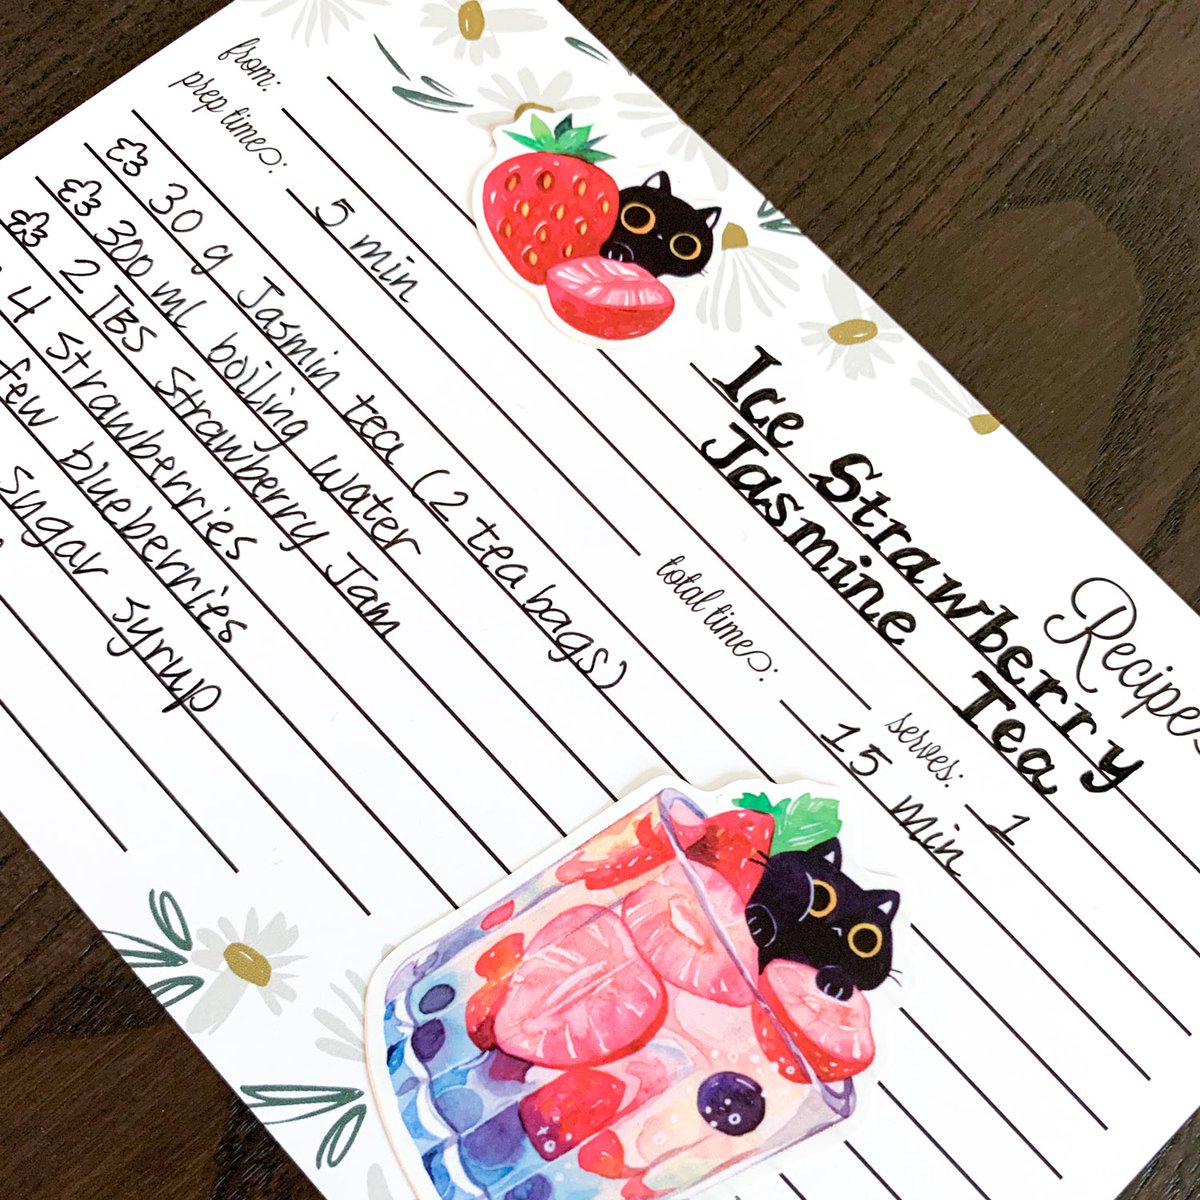 Recipes
Ice Strawberry
Jasmine Tea
serves: 1
from:
prep time: 5 min
total time: 15 min
30 g Jasmin tea (2 tea bags)
300 ml boiling water
2 TBS Strawberry Jam
4 Strawberries
few blueberries
sugar syrup